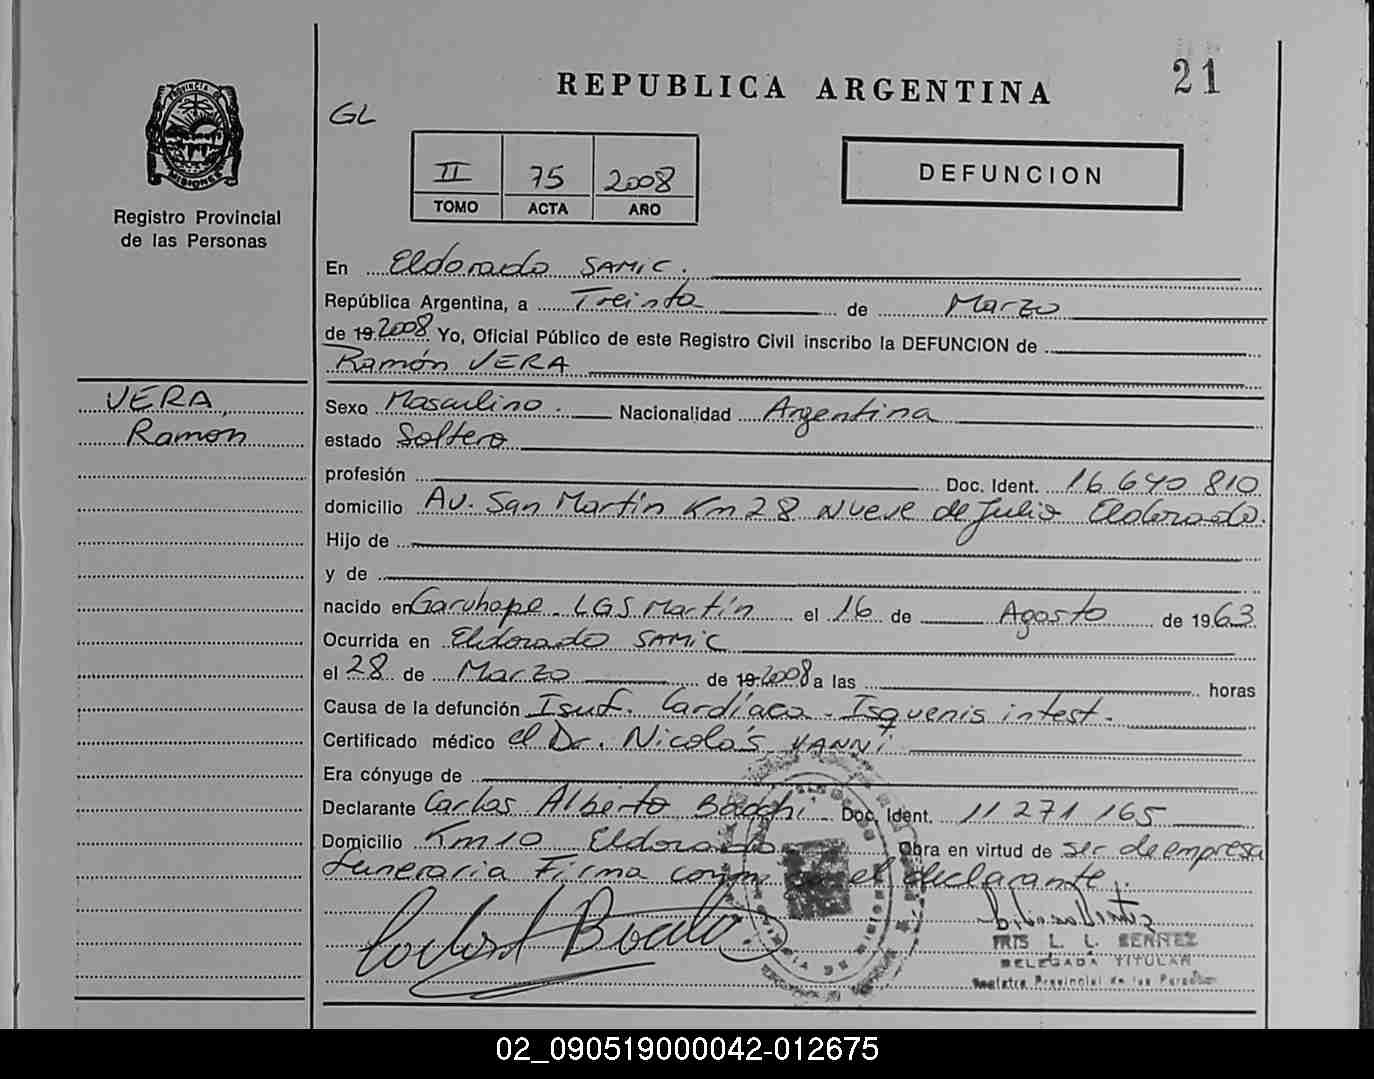 21
REPUBLICA ARGENTINA
GL
PROVINCIA DE
MISIONES
Registro Provincial
de las Personas
II 75 2008
TOMO ACTA AÑO
DEFUNCION
En Eldorado SAMIC.
República Argentina, a Treinta de Marzo
de 19 2008 Yo, Oficial Público de este Registro Civil inscribo la DEFUNCION de
Ramón VERA
VERA,
Ramon
Sexo Masculino. Nacionalidad Argentina
estado Soltero
profesión Doc. Ident. 16 640 810
domicilio Av. San Martín Km 28 Nueve de Julio Eldorado.
Hijo de
y de
nacido en Garuhape - LGS Martín el 16 de Agosto de 1963
Ocurrida en Eldorado SAMIC
el 28 de Marzo de 19 2008 a las horas
Causa de la defunción Isuf. Cardíaca - Isquenis intest.
Certificado médico el Dr. Nicolás YANNI
Era cónyuge de
Declarante Carlos Alberto Doc. Ident. 11 271 165
Domicilio Km 10 Eldorado Obra en virtud de ser de empresa
funeraria Firma el declarante.
L. L.
DELEGADA TITULAR
Registro Provincial de las Personas
02_090519000042-012675